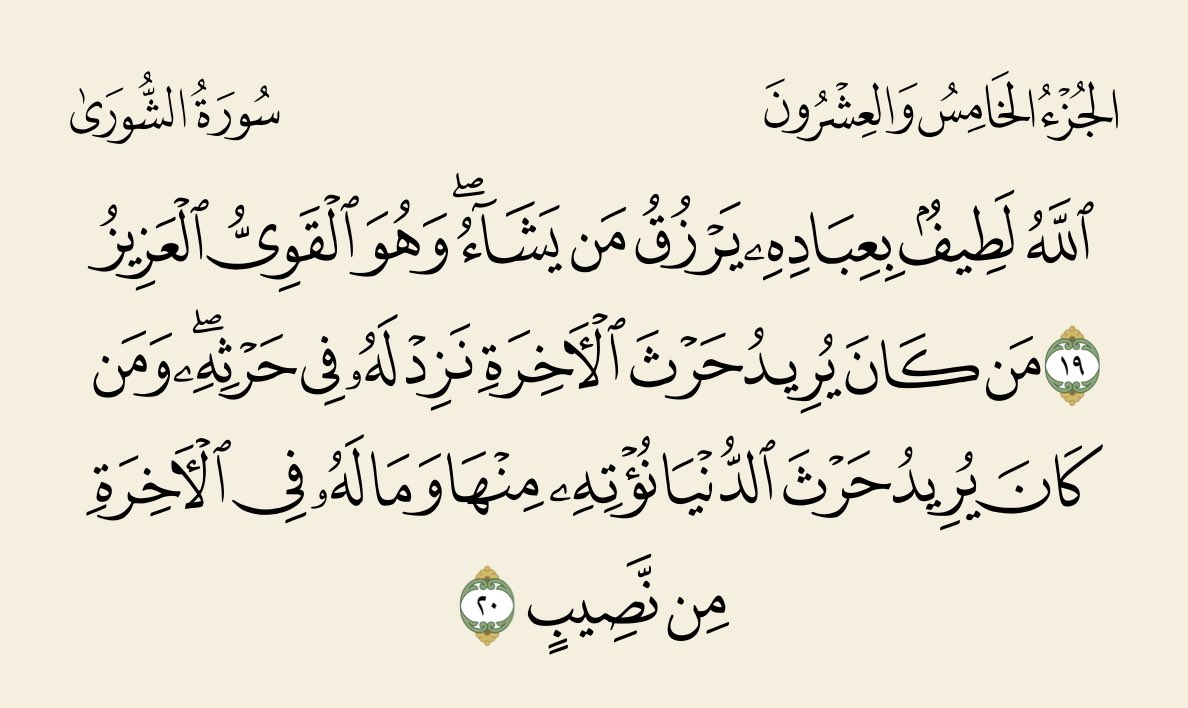 الجُزْءُ الخَامِسُ وَالعِشْرُونَ
سُورَةُ الشُّورَىٰ
ٱللَّهُ لَطِيفُۢ بِعِبَادِهِۦ يَرۡزُقُ مَن يَشَآءُۖ وَهُوَ ٱلۡقَوِىُّ ٱلۡعَزِيزُ
١٩ مَن كَانَ يُرِيدُ حَرۡثَ ٱلۡأَخِرَةِ نَزِدۡ لَهُۥ فِى حَرۡثِهِۦۖ وَمَن
كَانَ يُرِيدُ حَرۡثَ ٱلدُّنۡيَا نُؤۡتِهِۦ مِنۡهَا وَمَا لَهُۥ فِى ٱلۡأَخِرَةِ
مِن نَّصِيبٍ ٢٠